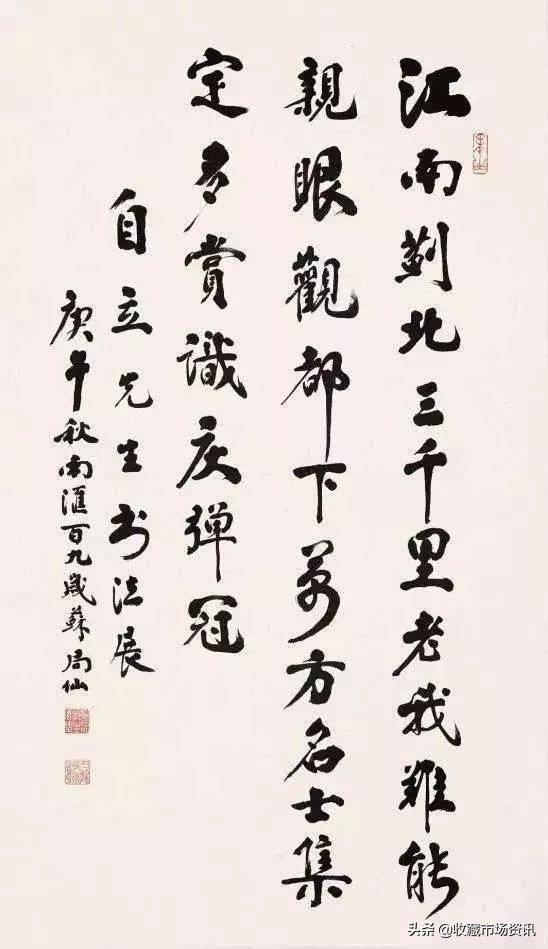 江南蓟北三千里老我難能
親眼觀都下万方名士集
定多賞識庆弹冠
自立先生书法展
庚午秋南滙百九歲蘇局仙
头条 @收藏市场资讯